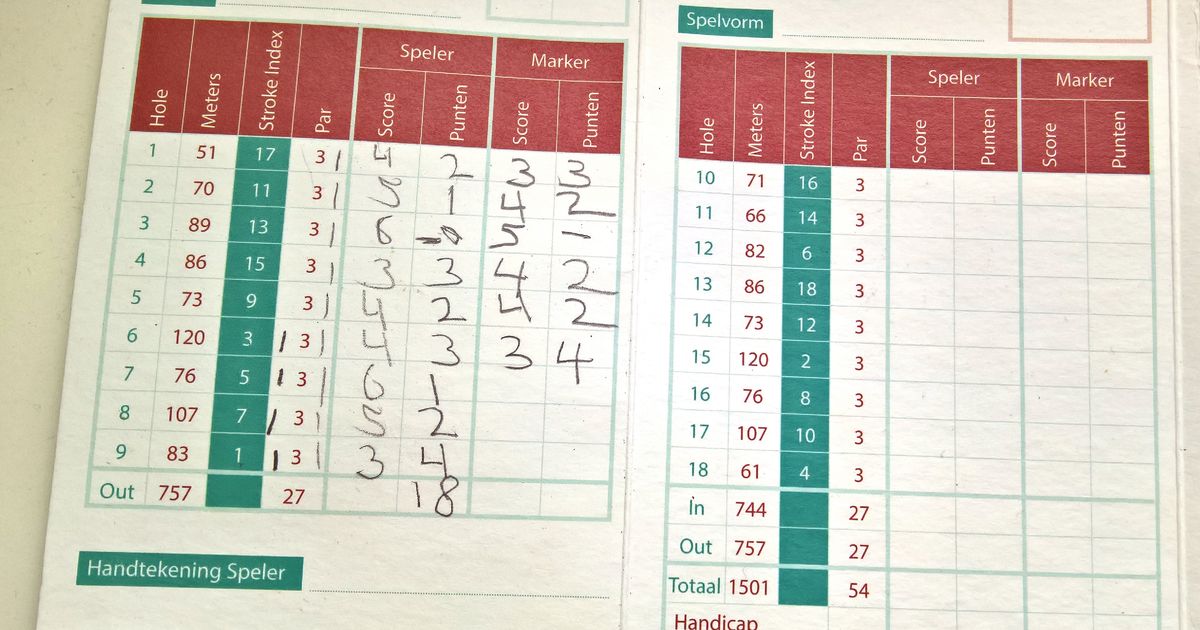 Speler Marker
Hole Meters Stroke Index Par Score Punten Score Punten
1 51 17 3 | 4 2 3 3
2 70 11 3 | 5 1 4 2
3 89 13 3 | 6 0 5 1
4 86 15 3 | 3 3 4 2
5 73 9 3 | 4 2 4 2
6 120 3 | 3 | 4 3 3 4
7 76 5 | 3 | 6 1
8 107 7 | 3 | 5 2
9 83 1 | 3 | 3 4
Out 757 27 18
Handtekening Speler
Spelvorm
Speler Marker
Hole Meters Stroke Index Par Score Punten Score Punten
10 71 16 3
11 66 14 3
12 82 6 3
13 86 18 3
14 73 12 3
15 120 2 3
16 76 8 3
17 107 10 3
18 61 4 3
In 744 27
Out 757 27
Totaal 1501 54
Handicap